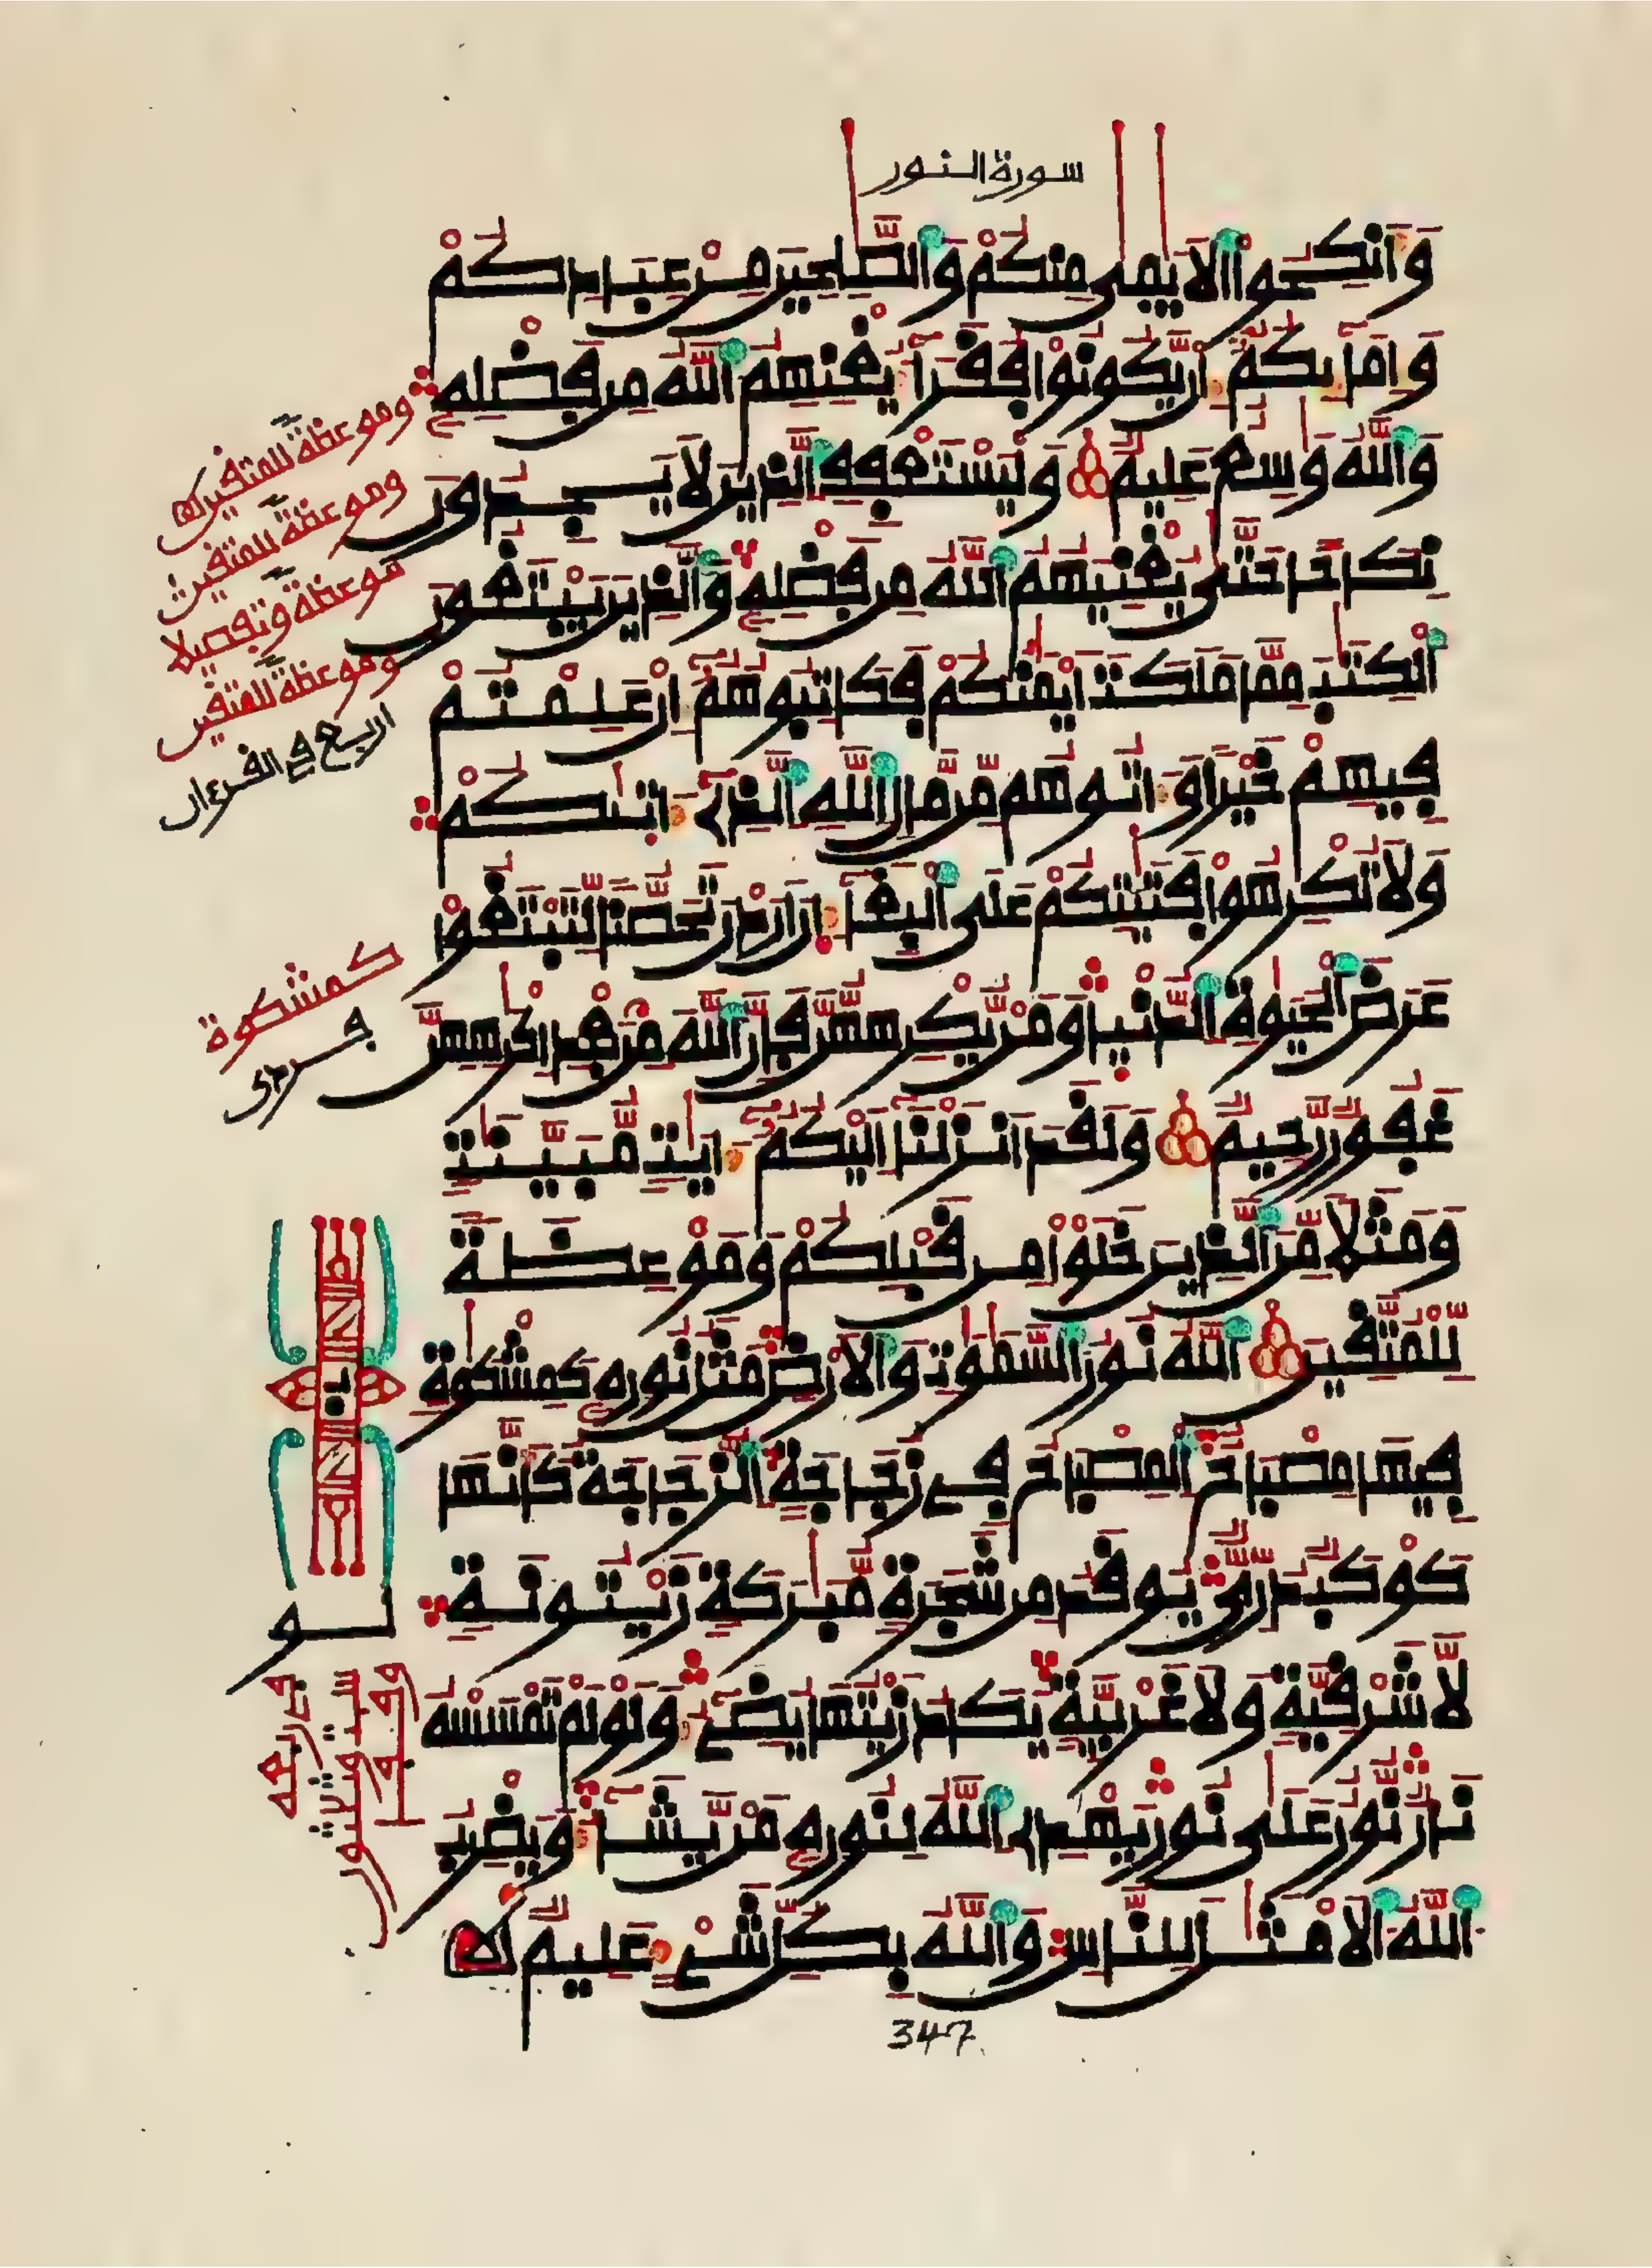 سورة النور
وَأَنكِحُوا الْأَيَمَى مِنكُمْ وَالصَّلِحِينَ مِنْ عِبَادِكُمْ
وَإِمَآئِكُمُ إِن يَكُونُوا فُقَرَآءَ يُغْنِهِمُ اللَّهُ مِن فَضْلِهِ
وَاللَّهُ وَسِعٌ عَلِيمٌ وَلْيَسْتَعْفِفِ الَّذِينَ لَا يَجِدُونَ
نِكَاحًا حَتَّى يُغْنِيَهُمُ اللَّهُ مِن فَضْلِهِ وَالَّذِينَ يَبْتَغُونَ
الْكِتَبَ مِمَّا مَلَكَتَ اَيْمَنُكُمْ فَكَاتِبُوهُمُ إِنْ عَلِمْتُمْ
فِيهِمْ خَيْرًا وَءَاتُوهُم مِّن مَّالِ اللَّهِ الَّذِي ءَاتَىكُمْ
وَلَا تُكْرِهُوا فَتَيَتِكُمْ عَلَى الْبِغَآءِ اِنَ اَرَدْنَ تَحَصُّنًا لِّتَبْتَغُوا
عَرَضَ الْحَيَوةِ الدُّنْيَا وَمَن يُّكْرِههُّنَّ فَإِنَّ اللَّهَ مِن بَعْدِ إِكْرَهِهِنَّ
غَفُورٌ رَّحِيمٌ وَلَقَدَ اَنزَلْنَا إِلَيْكُمُ ءَايَتٍ مُّبَيَّنَتٍ
وَمَثَلًا مِّنَ الَّذِينَ خَلَوْا مِن قَبْلِكُمْ وَمَوْعِظَةً
لِّلْمُتَّقِينَ اللَّهُ نُورُ السَّمَوَتِ وَالْأَرْضِ مَثَلُ نُورِهِ كَمِشْكَوةٍ
فِيهَا مِصْبَاحٌ الْمِصْبَاحُ فِي زُجَاجَةٍ الزُّجَاجَةُ كَأَنَّهَا
كَوْكَبٌ دُرِّيٌّ يُوقَدُ مِن شَجَرَةٍ مُّبَرَكَةٍ زَيْتُونَةٍ
لَّا شَرْقِيَّةٍ وَلَا غَرْبِيَّةٍ يَكَادُ زَيْتُهَا يُضِيءُ وَلَوْ لَمْ تَمْسَسْهُ
نَارٌ نُّورٌ عَلَى نُورٍ يَهْدِي اللَّهُ لِنُورِهِ مَن يَّشَآءُ وَيَضْرِبُ
اللَّهُ الْأَمْثَلَ لِلنَّاسِ وَاللَّهُ بِكُلِّ شَيْءٍ عَلِيمٌ
347
وموعظة للمتقين
وموعظة للمتقين
موعظة وتفصيلا
وموعظة للمتقين
اربع في القرءان
كمشكوة